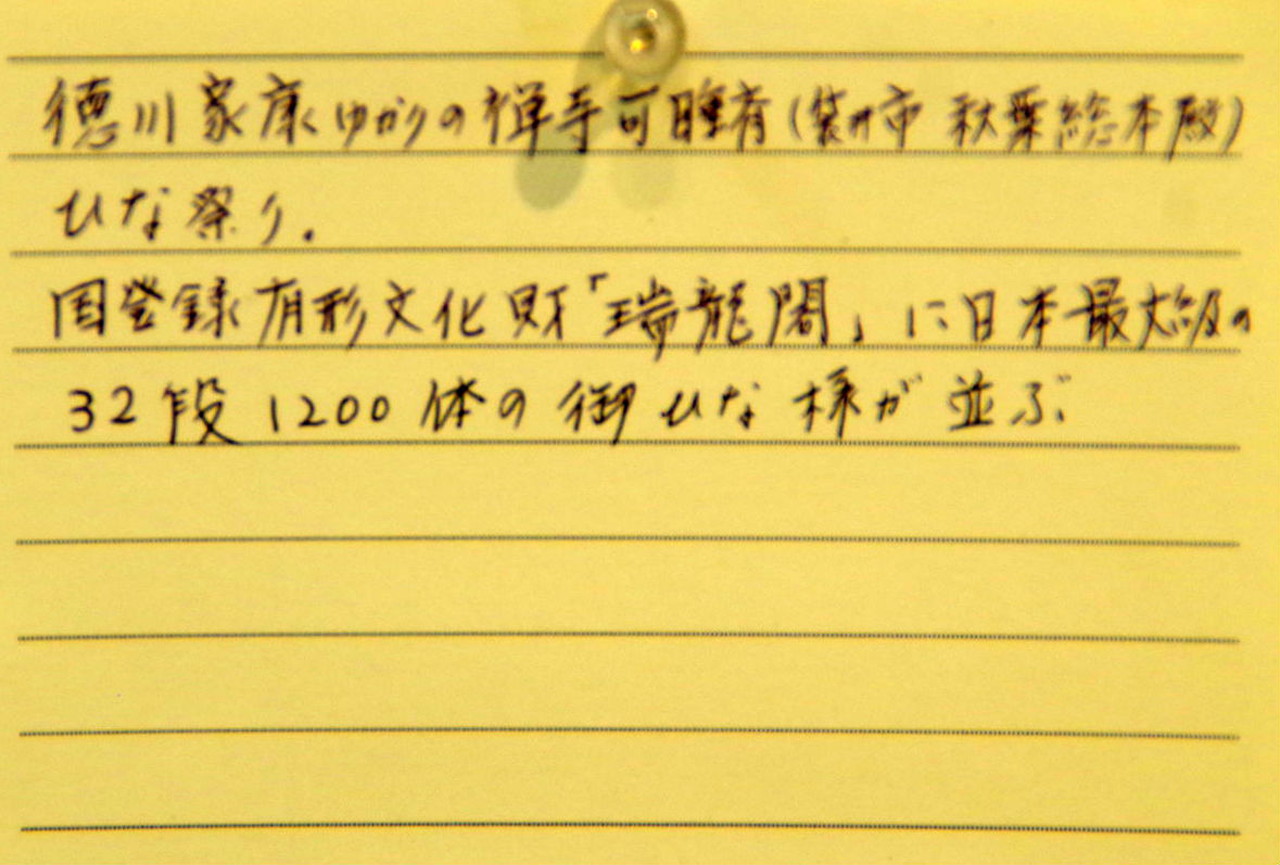 徳川家康ゆかりの禅寺可睡斎(袋井市 秋葉総本殿)
ひな祭り.
国登録有形文化財「瑞龍閣」に日本最大級の
32段1200体の御ひな様が並ぶ